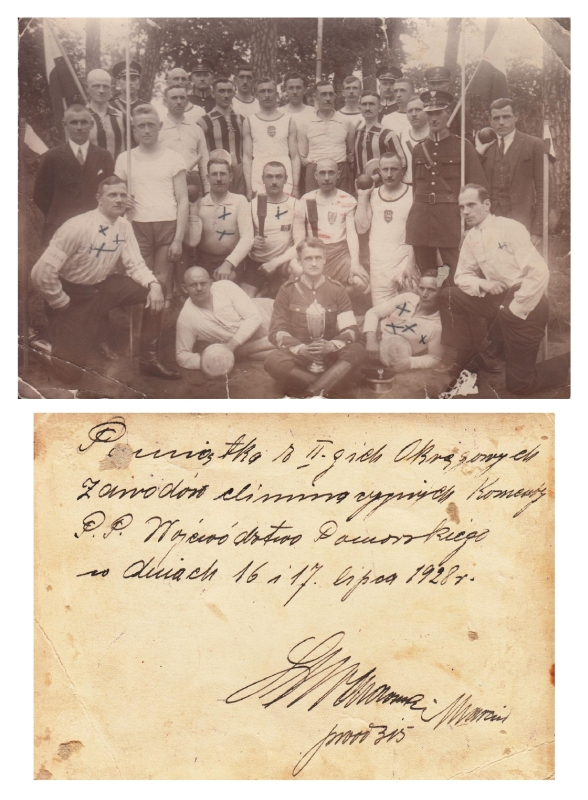 Pamiątka z II-gich Okręgowych
Zawodów eliminacyjnych Komendy
P.P. Województwa Pomorskiego
w dniach 16 i 17. lipca 1928 r.